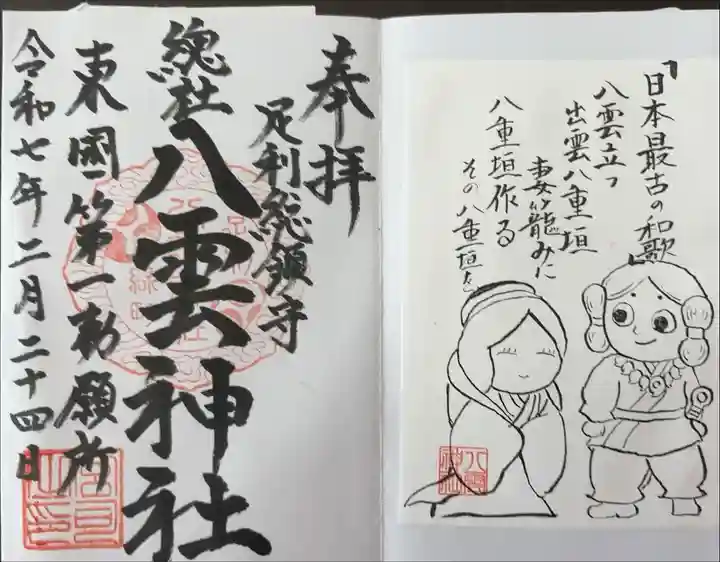 奉拝
足利総鎮守
總社
八雲神社
東國第一勅願所
令和七年二月二十四日
「日本最古の和歌」
八雲立つ
出雲八重垣
妻籠みに
八重垣作る
その八重垣を